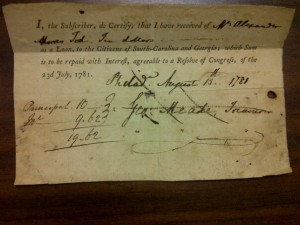 I, the Subscriber, do Certify, that I have received of Mr Alexander
Ten dollars
as a Loan, to the Citizens of South-Carolina and Georgia; which Sum
is to be repaid with Interest, agreeable to a Resolve of Congress, of the
23d July, 1781.
Philad. August 15th 1781
Principal 10
Int 9.62
19.62
Geo. Meade, Treasurer